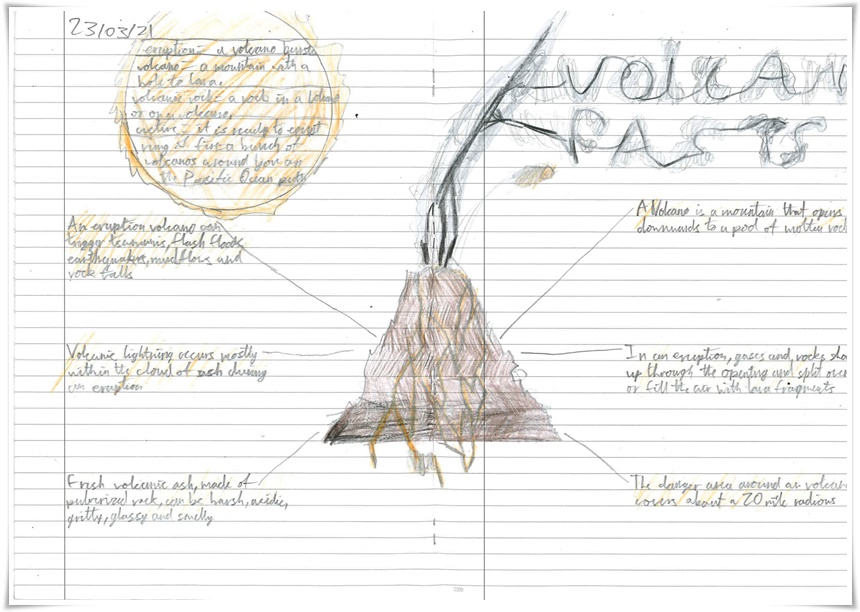 23/03/21
eruption - a volcano bursts
volcano - a mountain with a
hole to lava.
volcanic rock - a rock in a
or on a volcano.
active - it is ready to erupt
ring of fire a bunch of
volcanos around you an
Pacific Ocean
VOLCAN
FACTS
An eruption volcano can
trigger tsunamis, flash floods,
earthquakes, mud flows and
rock falls
A Volcano is a mountain that opens
downwards to a pool of molten rock
Volcanic lightning occurs mostly
within the cloud of ash during
an eruption
In an eruption, gases and rocks sho
up through the opening and spill over
or fill the air with lava fragments
Fresh volcanic ash, made of
pulverized rock, can be harsh, acidic,
gritty, glassy and smelly
The danger area around an volcan
covers about a 20 mile radious